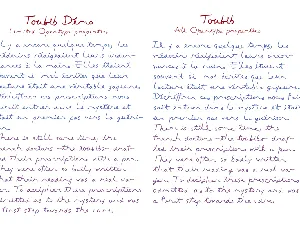 Toubib Démo
Limited Opentype properties
Il y a encore quelques temps, les
médecins rédigeaient leurs ordon-
nances à la main. Elles étaient
souvent si mal écrites que leur
lecture était une véritable gageure.
Déchiffrer ces prescriptions nous
un premier pas vers la guérison.
There is still some time, the
french doctors draf-
ted their prescriptions with a pen.
They were often so badly written
that their reading was a real
To decipher these prescriptions
the mystery and was
a first step towards the cure.
Toubib
Full Opentype properties
Il y a encore quelques temps, les
médecins rédigeaient leurs ordon-
nances à la main. Elles étaient
souvent si mal écrites que leur
lecture était une véritable gageure.
Déchiffrer ces prescriptions nous
le mystère et était
un premier pas vers la guérison.
There is still some time, the
french doctors draf-
ted their prescriptions with a pen.
They were often so badly written
that their reading was a real
To decipher these prescriptions
the mystery and was
a first step towards the cure.